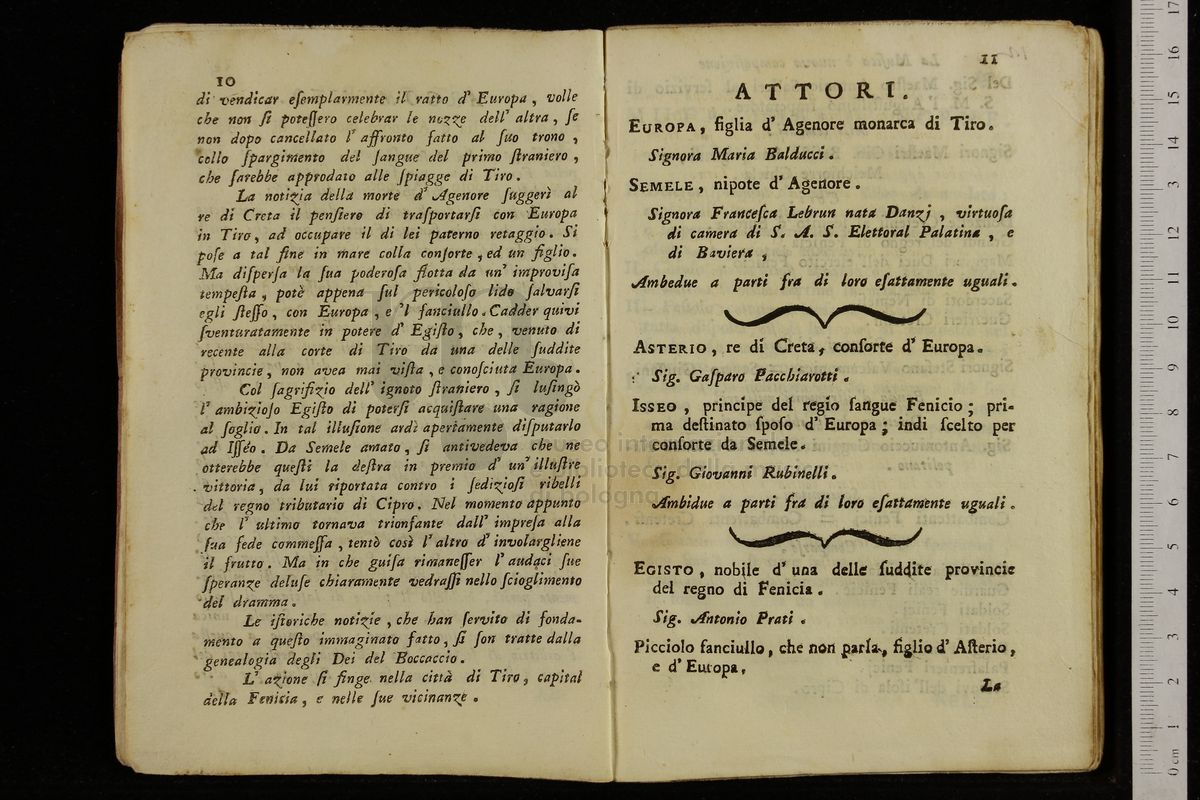 10
di vendicar eſemplarmente il ratto d' Europa , volle
che non ſi poteſſero celebrar le nozze dell' altra , ſe
non dopo cancellato l' affronto fatto al ſuo trono ,
collo ſpargimento del ſangue del primo ſtraniero ,
che ſarebbe approdato alle ſpiagge di Tiro .
La notizia della morte d' Agenore ſuggerì al
re di Creta il penſiero di traſportarſi con Europa
in Tiro , ad occupare il di lei paterno retaggio . Si
poſe a tal fine in mare colla conſorte , ed un figlio .
Ma diſperſa la ſua poderoſa flotta da un' improviſa
tempeſta , potè appena ſul pericoloſo lido ſalvarſi
egli ſteſſo , con Europa , e 'l fanciullo . Cadder quivi
ſventuratamente in potere d' Egiſto , che , venuto di
recente alla corte di Tiro da una delle ſuddite
provincie , non avea mai viſta , e conoſciuta Europa .
Col ſagrifizio dell' ignoto ſtraniero , ſi luſingò
l' ambizioſo Egiſto di poterſi acquiſtare una ragione
al ſoglio . In tal illuſione ardì apertamente diſputarlo
ad Iſſéo . Da Semele amato , ſi antivedeva che ne
otterebbe queſti la deſtra in premio d' un' illuſtre
vittoria , da lui riportata contro i ſedizioſi ribelli
del regno tributario di Cipro . Nel momento appunto
che l' ultimo tornava trionfante dall' impreſa alla
ſua fede commeſſa , tentò così l' altro d' involargliene
il frutto . Ma in che guiſa rimaneſſer l' audaci ſue
ſperanze deluſe chiaramente vedraſſi nello ſcioglimento
del dramma .
Le iſtoriche notizie , che han ſervito di fonda-
mento a queſto immaginato fatto , ſi ſon tratte dalla
genealogia degli Dei del Boccaccio .
L' azione ſi finge nella città di Tiro , capital
della Fenicia , e nelle ſue vicinanze .
11
ATTORI.
EUROPA , figlia d' Agenore monarca di Tiro .
Signora Maria Balducci .
SEMELE , nipote d' Agenore .
Signora Franceſca Lebrun nata Danzj , virtuoſa
di camera di S. A. S. Elettoral Palatina , e
di Baviera ,
Ambedue a parti fra di loro eſattamente uguali .
ASTERIO , re di Creta , conſorte d' Europa .
Sig. Gaſparo Pacchiarotti .
ISSEO , principe del regio ſangue Fenicio ; pri-
ma deſtinato ſpoſo d' Europa ; indi ſcelto per
conſorte da Semele .
Sig. Giovanni Rubinelli .
Ambidue a parti fra di loro eſattamente uguali .
EGISTO , nobile d' una delle ſuddite provincie
del regno di Fenicia .
Sig. Antonio Prati .
Picciolo fanciullo , che non parla , figlio d' Aſterio ,
e d' Europa ,
La